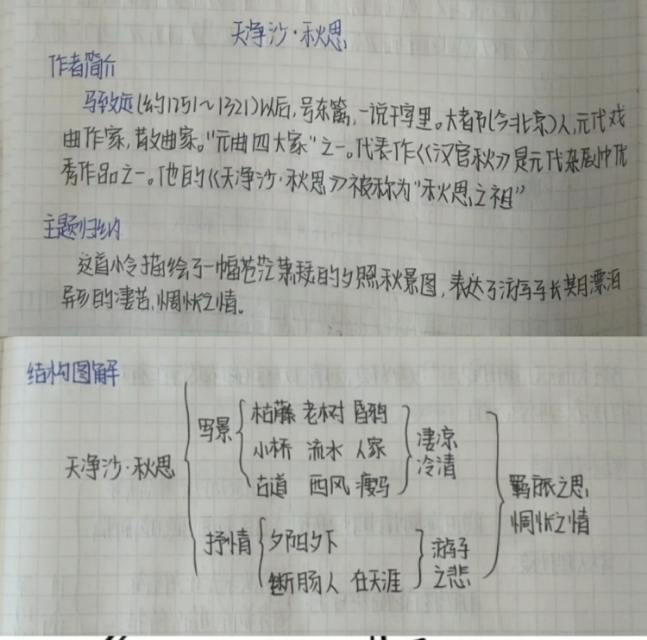 天净沙·秋思
作者简介
马致远(约1251～1321)以后,号东篱,一说千里。大都(今北京)人,元代戏
曲作家,散曲家。“元曲四大家”之一。代表作《汉宫秋》是元代杂剧中优
秀作品之一。他的《天净沙·秋思》被称为“秋思之祖”
主题归纳
这首小令描绘了一幅苍茫萧瑟的夕照秋景图,表达了游子长期漂泊
异乡的凄苦,惆怅之情。
结构图解
天净沙·秋思
写景
枯藤 老树 昏鸦
小桥 流水 人家
古道 西风 瘦马
凄凉
冷清
抒情
夕阳夕下
断肠人 在天涯
游子
之悲
羁旅之思
惆怅之情